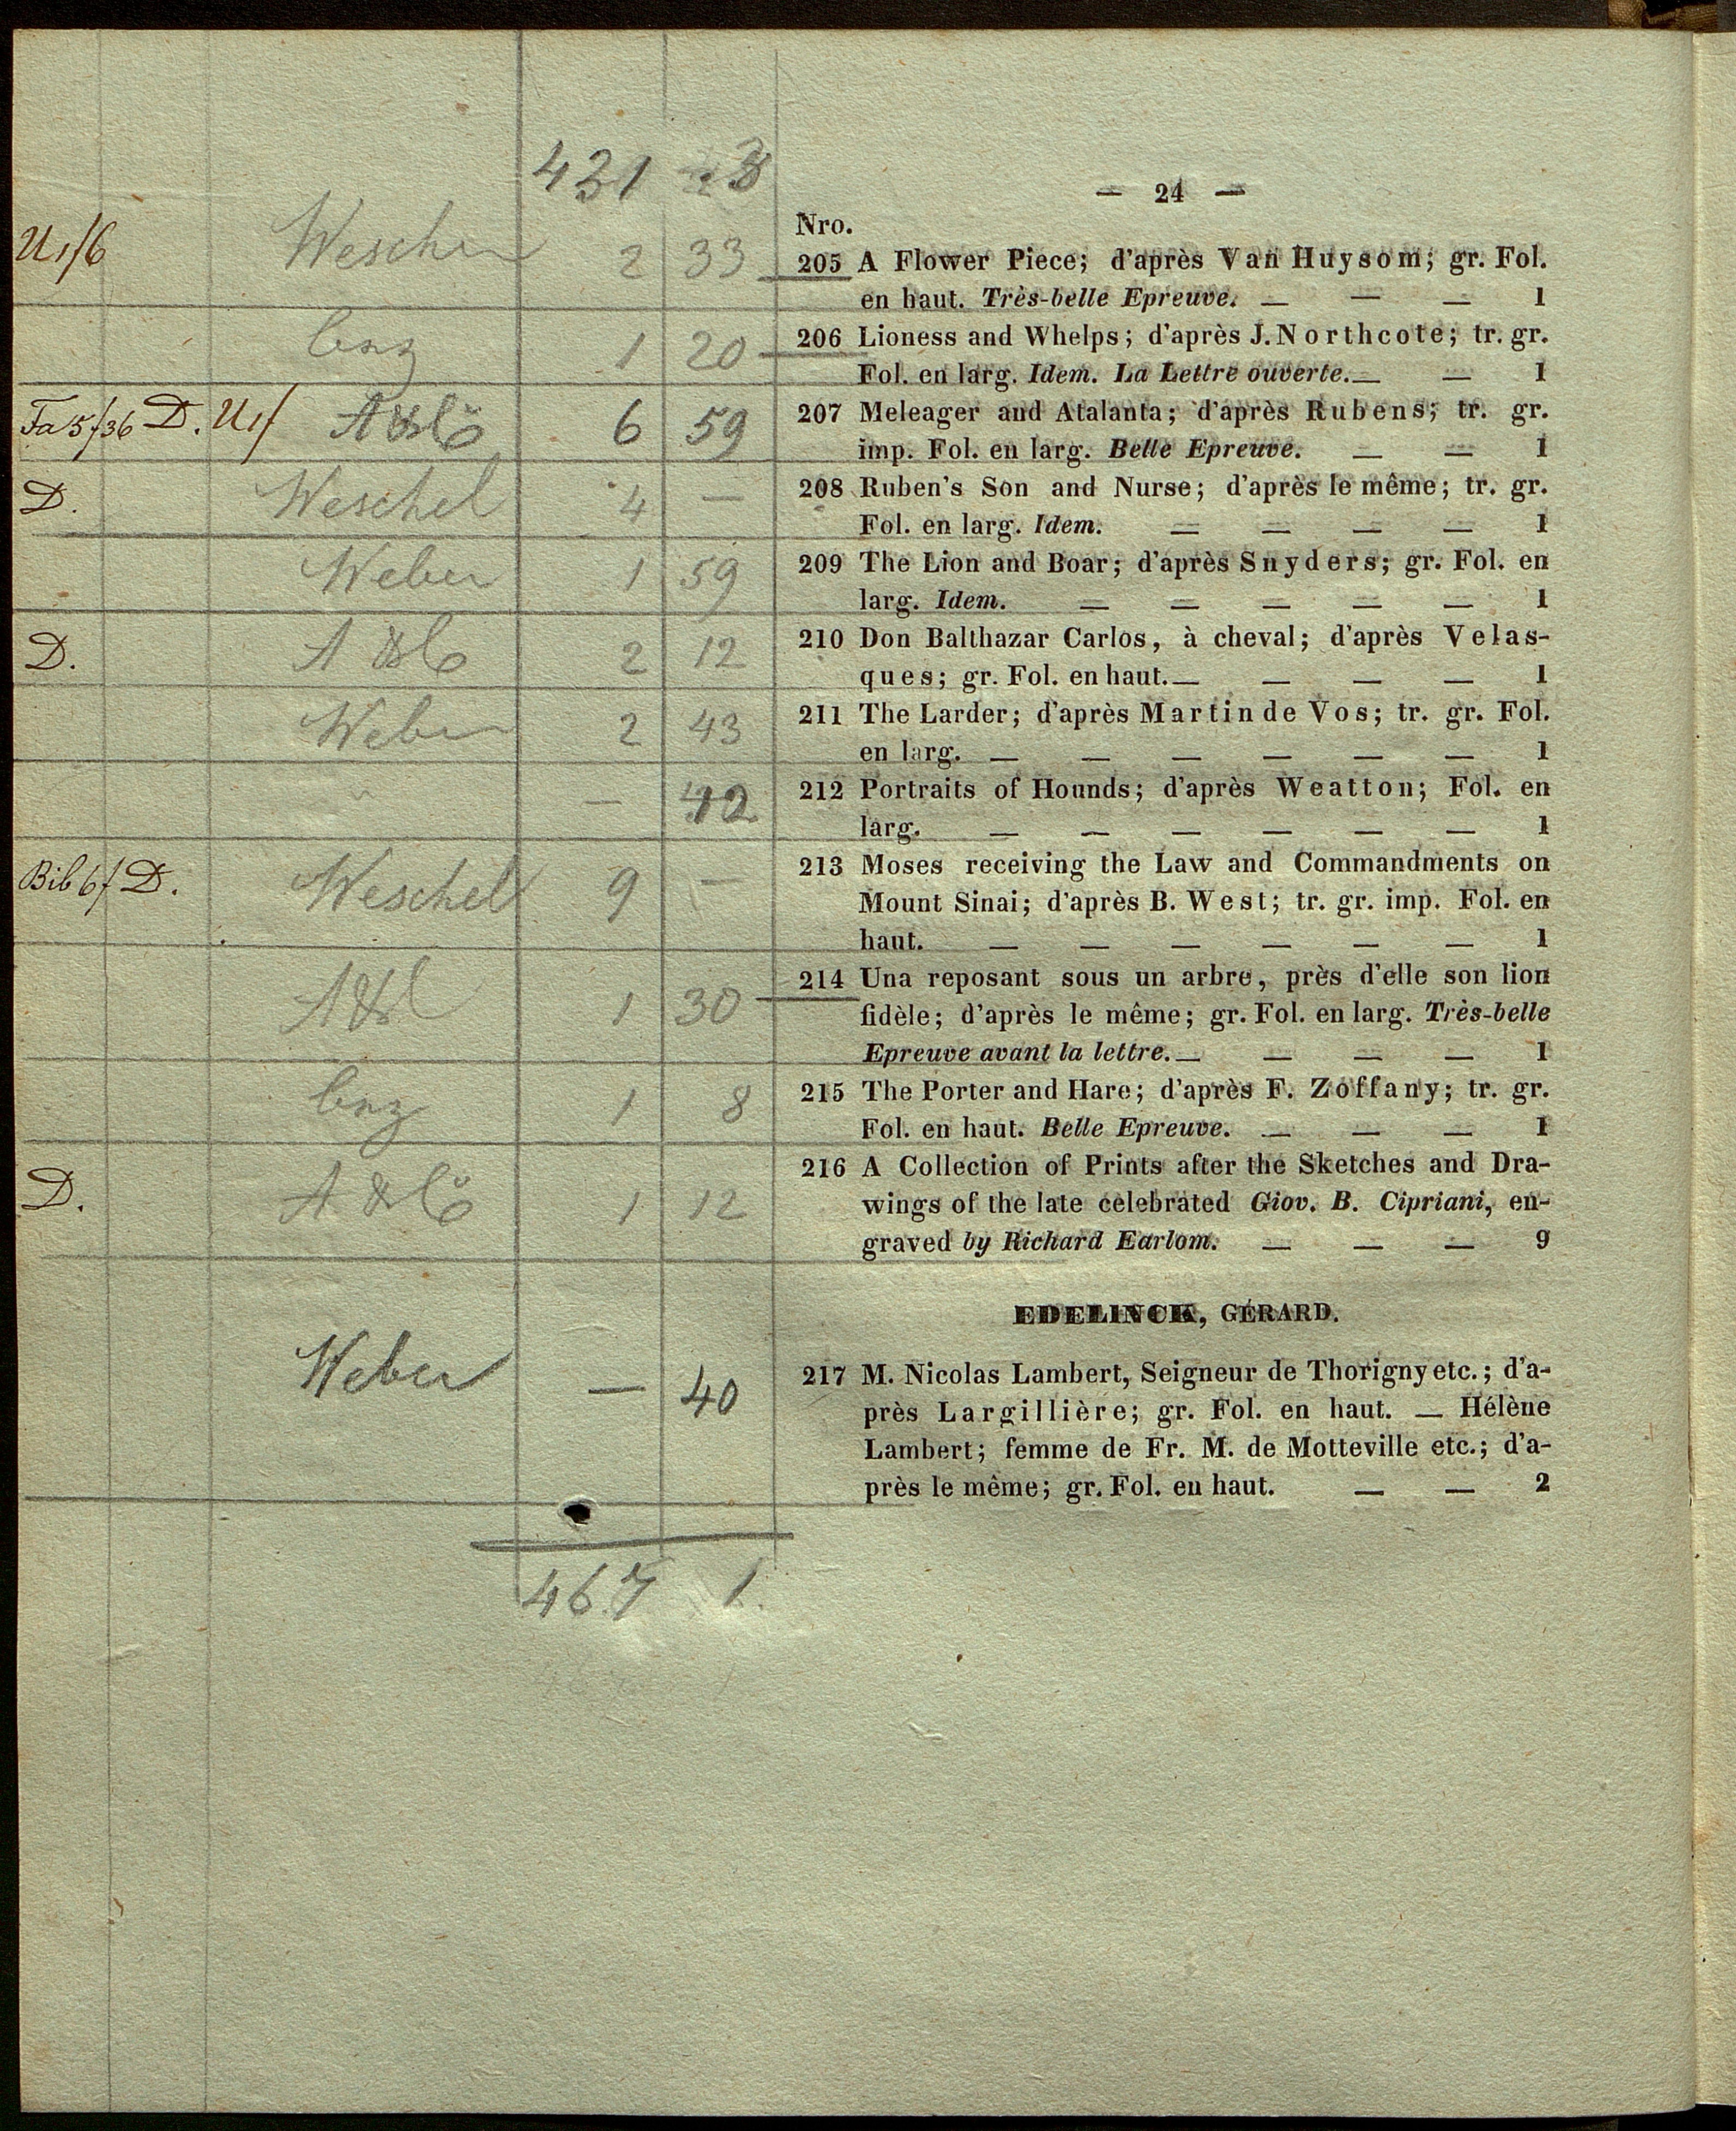 421 3
— 24 —
Nro.
U1/6 Weschel 2 33 205 A Flower Piece; d'après Van Huysom; gr. Fol.
en haut. Très-belle Epreuve. — — — 1
1 20 206 Lioness and Whelps; d'après J. Northcote; tr. gr.
Fol. en larg. Idem. La Lettre ouverte. — — 1
Fa 5/36 D. U1/ A & Co 6 59 207 Meleager and Atalanta; d'après Rubens; tr. gr.
imp. Fol. en larg. Belle Epreuve. — — 1
D. Weschel 4 — 208 Ruben's Son and Nurse; d'après le même; tr. gr.
Fol. en larg. Idem. — — — — 1
Weber 1 59 209 The Lion and Boar; d'après Snyders; gr. Fol. en
larg. Idem. — — — — — 1
D. A & Co 2 12 210 Don Balthazar Carlos, à cheval; d'après Velas-
ques; gr. Fol. en haut. — — — — 1
Weber 2 43 211 The Larder; d'après Martin de Vos; tr. gr. Fol.
en larg. — — — — — — 1
— 42 212 Portraits of Hounds; d'après Weatton; Fol. en
larg. — — — — — — 1
Bib 6/ D. Weschel 9 — 213 Moses receiving the Law and Commandments on
Mount Sinai; d'après B. West; tr. gr. imp. Fol. en
haut. — — — — — — 1
1 30 214 Una reposant sous un arbre, près d'elle son lion
fidèle; d'après le même; gr. Fol. en larg. Très-belle
Epreuve avant la lettre. — — — — 1
1 8 215 The Porter and Hare; d'après F. Zoffany; tr. gr.
Fol. en haut. Belle Epreuve. — — — 1
D. A & Co 1 12 216 A Collection of Prints after the Sketches and Dra-
wings of the late celebrated Giov. B. Cipriani, en-
graved by Richard Earlom. — — — 9
EDELINCK, GÉRARD.
Weber — 40 217 M. Nicolas Lambert, Seigneur de Thorigny etc.; d'a-
près Largillière; gr. Fol. en haut. — Hélène
Lambert; femme de Fr. M. de Motteville etc.; d'a-
près le même; gr. Fol. en haut. — — 2
467 1.